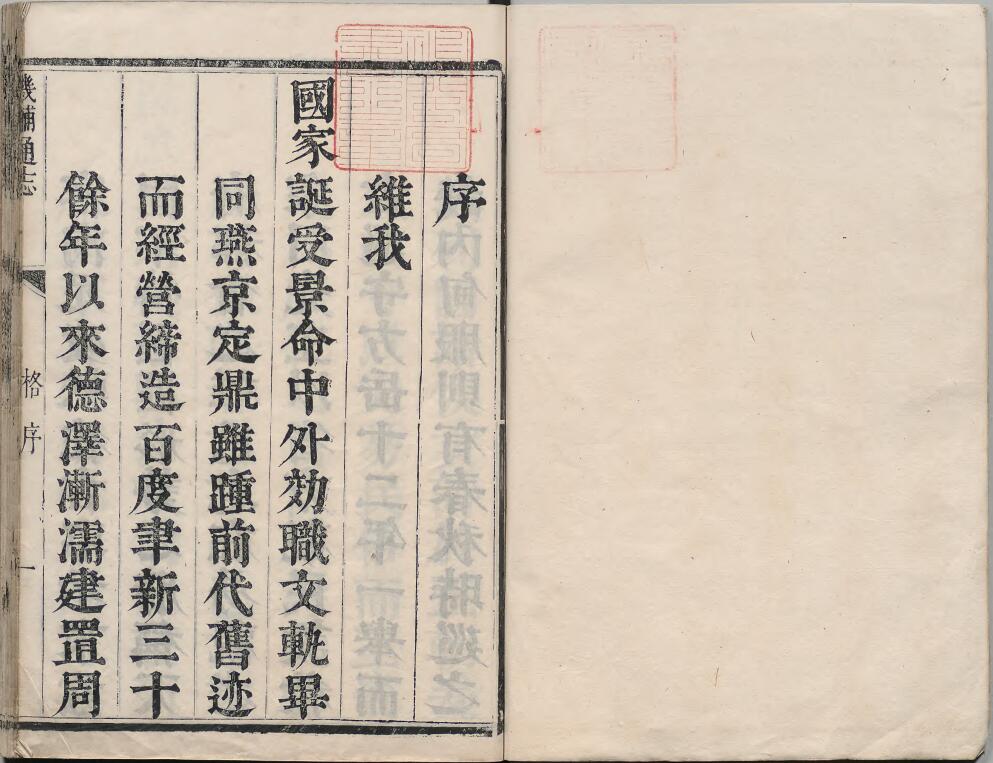 序
維我
國家誕受景命中外効職文軌畢
同燕京定鼎雖踵前代舊迹
而經營締造百度聿新三十
餘年以來德澤漸濡建置周
畿輔通志
格序
一